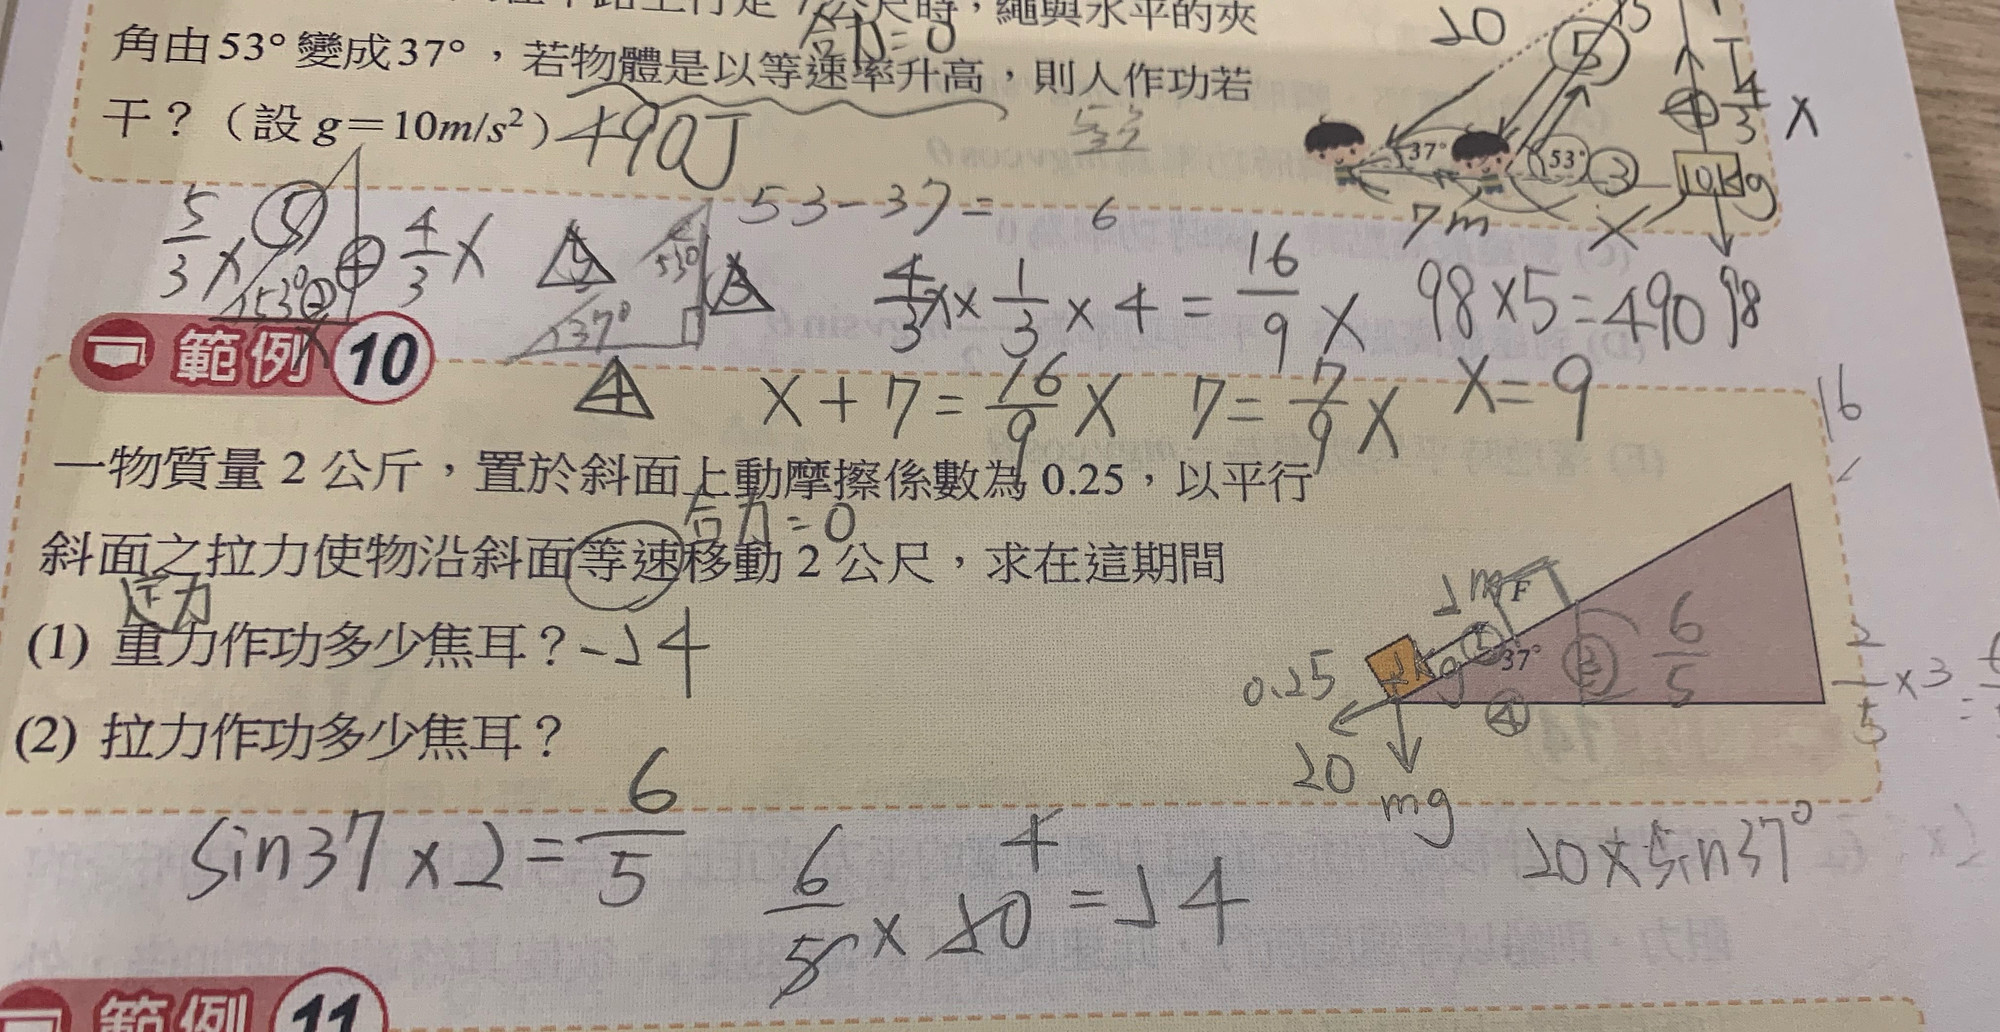 尺時，繩與水平的夾
合力=0
角由53°變成37°，若物體是以等速率升高，則人作功若
干？（設 g＝10m/s²）490J
20
5
T
4/3 x
37°
53°
3
10kg
7m
x
98
5/3 x
5
53°
4
4/3 x
x
5
37°
53°
3
4
53-37=
6
4/3 x × 1/3 × 4 = 16/9 x
98×5=490
x+7=16/9 x
7=7/9 x
x=9
範例 10
一物質量 2 公斤，置於斜面上動摩擦係數為 0.25，以平行
合力=0
斜面之拉力使物沿斜面等速移動 2 公尺，求在這期間
(1) 重力作功多少焦耳？-24
(2) 拉力作功多少焦耳？
16
2m
F
6/5
0.25
2kg
37°
3
4
20
mg
2/5 ×3=
sin37×2=6/5
6/5 × 20 = 24
4
20×sin37°
範例 11